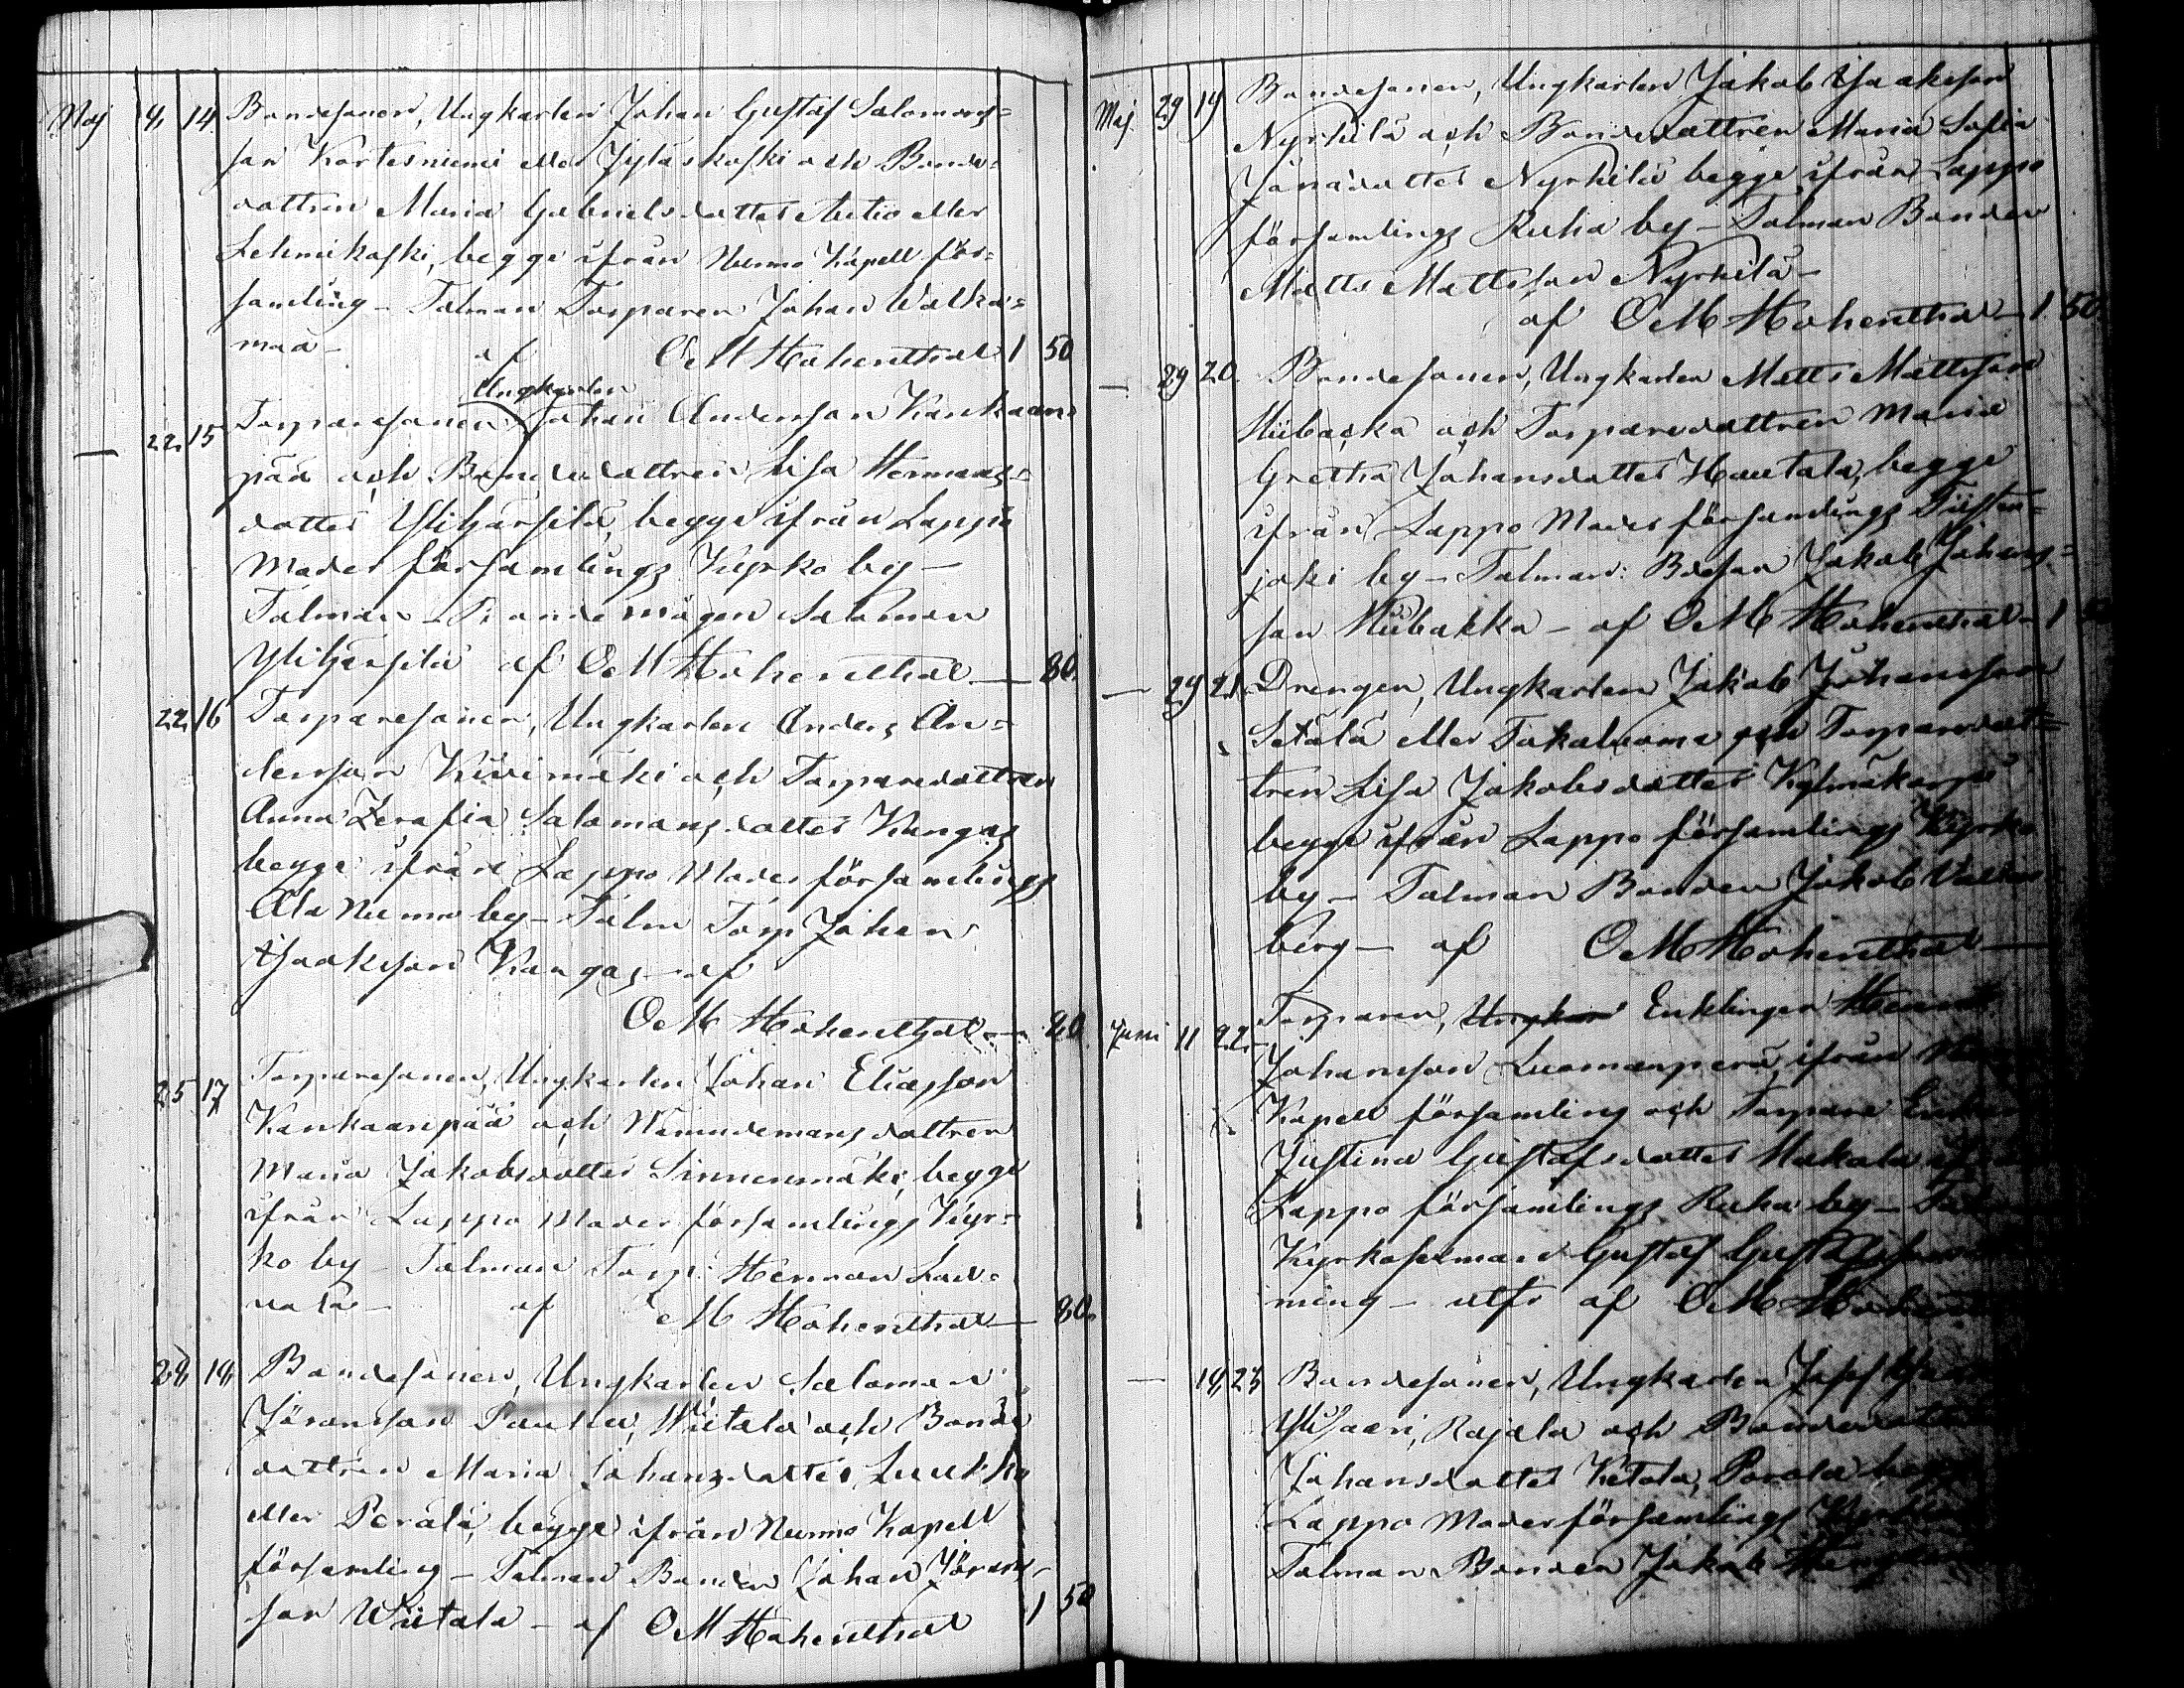 Maj 4, 14. Bondesonen, Ungkarlen Johan Gustaf Salomons=
son Kortesniemi eller Jyläskoski och Bonde=
dottren Maria Gabrielsdotter Autio eller
Lehmikoski, begge ifrån Nurmo Kapell för=
samling - Talman Torparen Johan Walkia=
maa - af OM Hohenthal 1 50
Ungkarlen
— 22. 15 Torparesonen Johan Andersson Kankaan=
pää och Bondedottren Lisa Hermans=
dotter Ylihärsilä, begge ifrån Lappo
Moder församlings Kyrko by -
Talman - Bonde mågen Salomon
Ylihärsilä af OM Hohenthal — 80.
22. 16 Torparesonen, Ungkarlen Anders An=
dersson Kivimäki och Torparedottren
Anna Serafia Salomonsdotter Kangas
begge ifrån Lappo Moder församlings
Ala Nurmo by - Talm Torp Johan
Isaaksson Kangas - af
OM Hohenthal — 80.
25 17 Torparesonen, Ungkarlen Johan Eliasson
Kankaanpää och Nämndemansdottren
Maria Jakobsdotter Sinnenmäki, begge
ifrån Lappo Moder församlings Kyr=
ko by - Talman Torp. Herman
- af M Hohenthal — 80.
28, 18, Bondesonen, Ungkarlen Salomon
Jöransson Wiitala och Bonde
dottren Maria Johansdotter Luukko
eller Perälä, begge ifrån Nurmo Kapell
församling - Talman Bonden Johan Jörans=
son Wiitala - af OM Hohenthal 1 50
Maj. 29 19 Bondesonen, Ungkarlen Jakob Isaaksson
Nyrhilä och Bondedottren Maria Sofia
Jonasdotter Nyrhilä begge ifrån Lappo
församlings Ruha by - Talman Bonden
Matts Mattsson Nyrhilä -
af OM Hohenthal - 1 50.
— 29 20. Bondesonen, Ungkarlen Matts Mattsson
Hiibacka och Torparedottren Maria
Gretha Johansdotter Hautala, begge
ifrån Lappo Moder församlings Tiisten=
joki by - Talman: Bdeson Jakob Johans=
son Hiibakka - af OM Hohenthal - 1 50
— 29 21. Drengen, Ungkarlen Jakob Johansson
Setälä eller Takaluoma och Torparedott=
tren Lisa Jakobsdotter Kylmäkorpi
begge ifrån Lappo församlings Kyrko
by - Talman Bonden Jakob
berg - af OM Hohenthal —
Juni 11 22. Torparen, Ungkar Enklingen
Johansson Luomanperä, ifrån
Kapell församling och Torpare
Justina Gustafsdotter Makala
Lappo församlings Ruha by -
Gustaf
ming - utfr af OM
— 18, 23 Bondesonen, Ungkarlen
Ylisaari, Rajala och
Johansdotter Ketola, Porola
Lappo Moder församlings
Talman Bonden Jakob